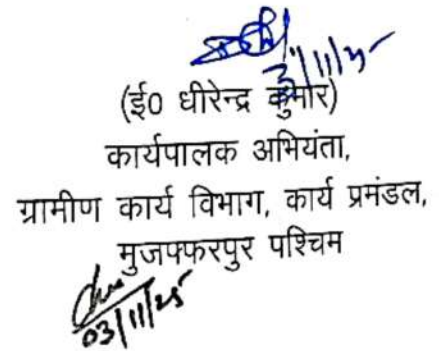 3/11/25
(ई0 धीरेन्द्र कुमार)
कार्यपालक अभियंता,
ग्रामीण कार्य विभाग, कार्य प्रमंडल,
मुजफ्फरपुर पश्चिम
03/11/25